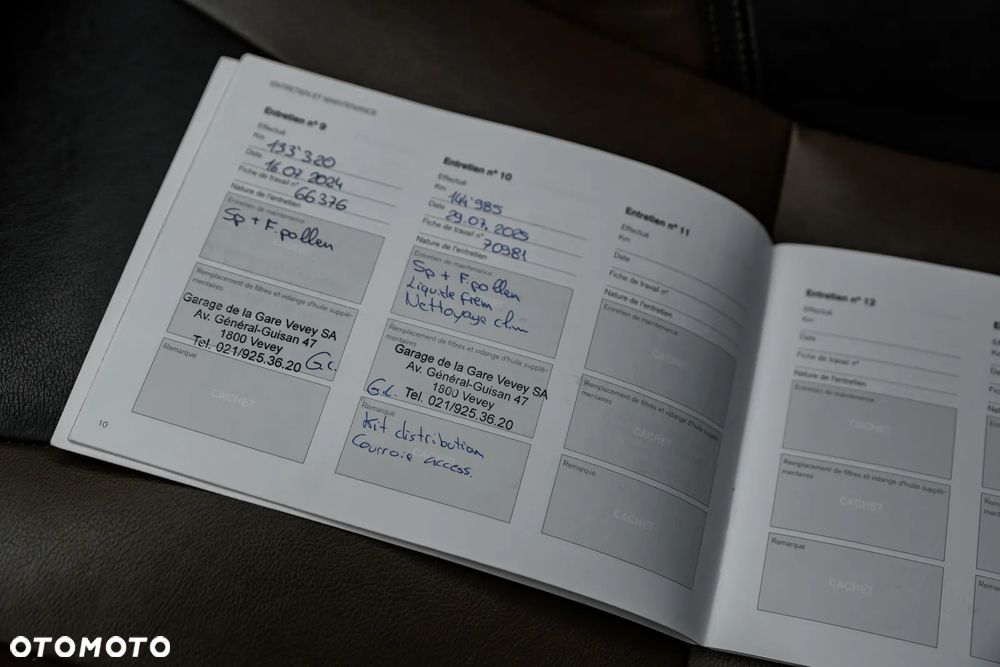 ENTRETIEN ET MAINTENANCE
Entretien n° 9
Effectué
Km 133'320
Date 16.07.2024
Fiche de travail n° 66376
Nature de l'entretien
Entretien de maintenance
Sp + F. pollen
Remplacement de filtres et vidange d'huile supplé-
mentaires
Garage de la Gare Vevey SA
Av. Général-Guisan 47
1800 Vevey
Tel. 021/925.36.20 G.C.
Remarque
CACHET
10
Entretien n° 10
Effectué
Km 144'985
Date 29.07.2025
Fiche de travail n° 70981
Nature de l'entretien
Entretien de maintenance
Sp + F. pollen
Liquide frein
Nettoyage clim
Remplacement de filtres et vidange d'huile supplé-
mentaires
Garage de la Gare Vevey SA
Av. Général-Guisan 47
1800 Vevey
G.C. Tel. 021/925.36.20
Remarque
Kit distribution
Courroie access.
Entretien n° 11
Effectué
Km
Date
Fiche de travail n°
Nature de l'entretien
Entretien de maintenance
CACHET
Remplacement de filtres et vidange d'huile supplé-
mentaires
CACHET
Remarque
CACHET
Entretien n° 12
Effectué
Km
Date
Fiche de travail n°
Nature de l'entretien
Entretien de maintenance
CACHET
Remplacement de filtres et vidange d'huile supplé-
mentaires
CACHET
Remarque
CACHET
OTOMOTO